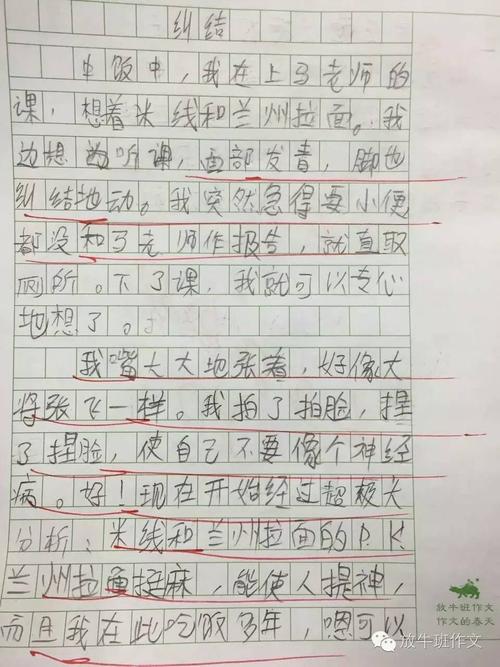 纠结
中饭中，我在上马老师的
课，想着米线和兰州拉面。我
边想边听课，面部发青，脚也
纠结地动。我突然急得要小便
都没和马老师作报告，就直取
厕所。下了课，我就可以专心
地想了。
我嘴大大地张着，好像大
将张飞一样。我拍了拍脸，捏
了捏脸，使自己不要像个神经
病。好！现在开始经过超极大
分析：米线和兰州拉面的P.K.
兰州拉面挺麻，能使人提神，
而且我在此吃饭多年，嗯可以
放牛班作文
作文的春天
放牛班作文